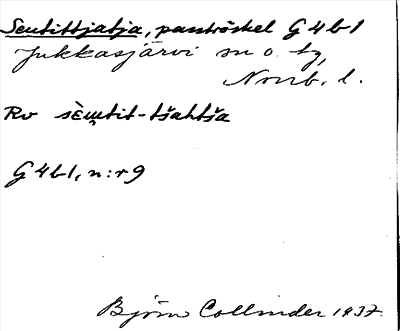 Seutittjatja, pasströskel G4b1
Jukkasjärvi sn o. tg,
Norrb. l.
Rv sèu̯tit-tšahtša
G4b1, n:r 9
Björn Collinder 1937.